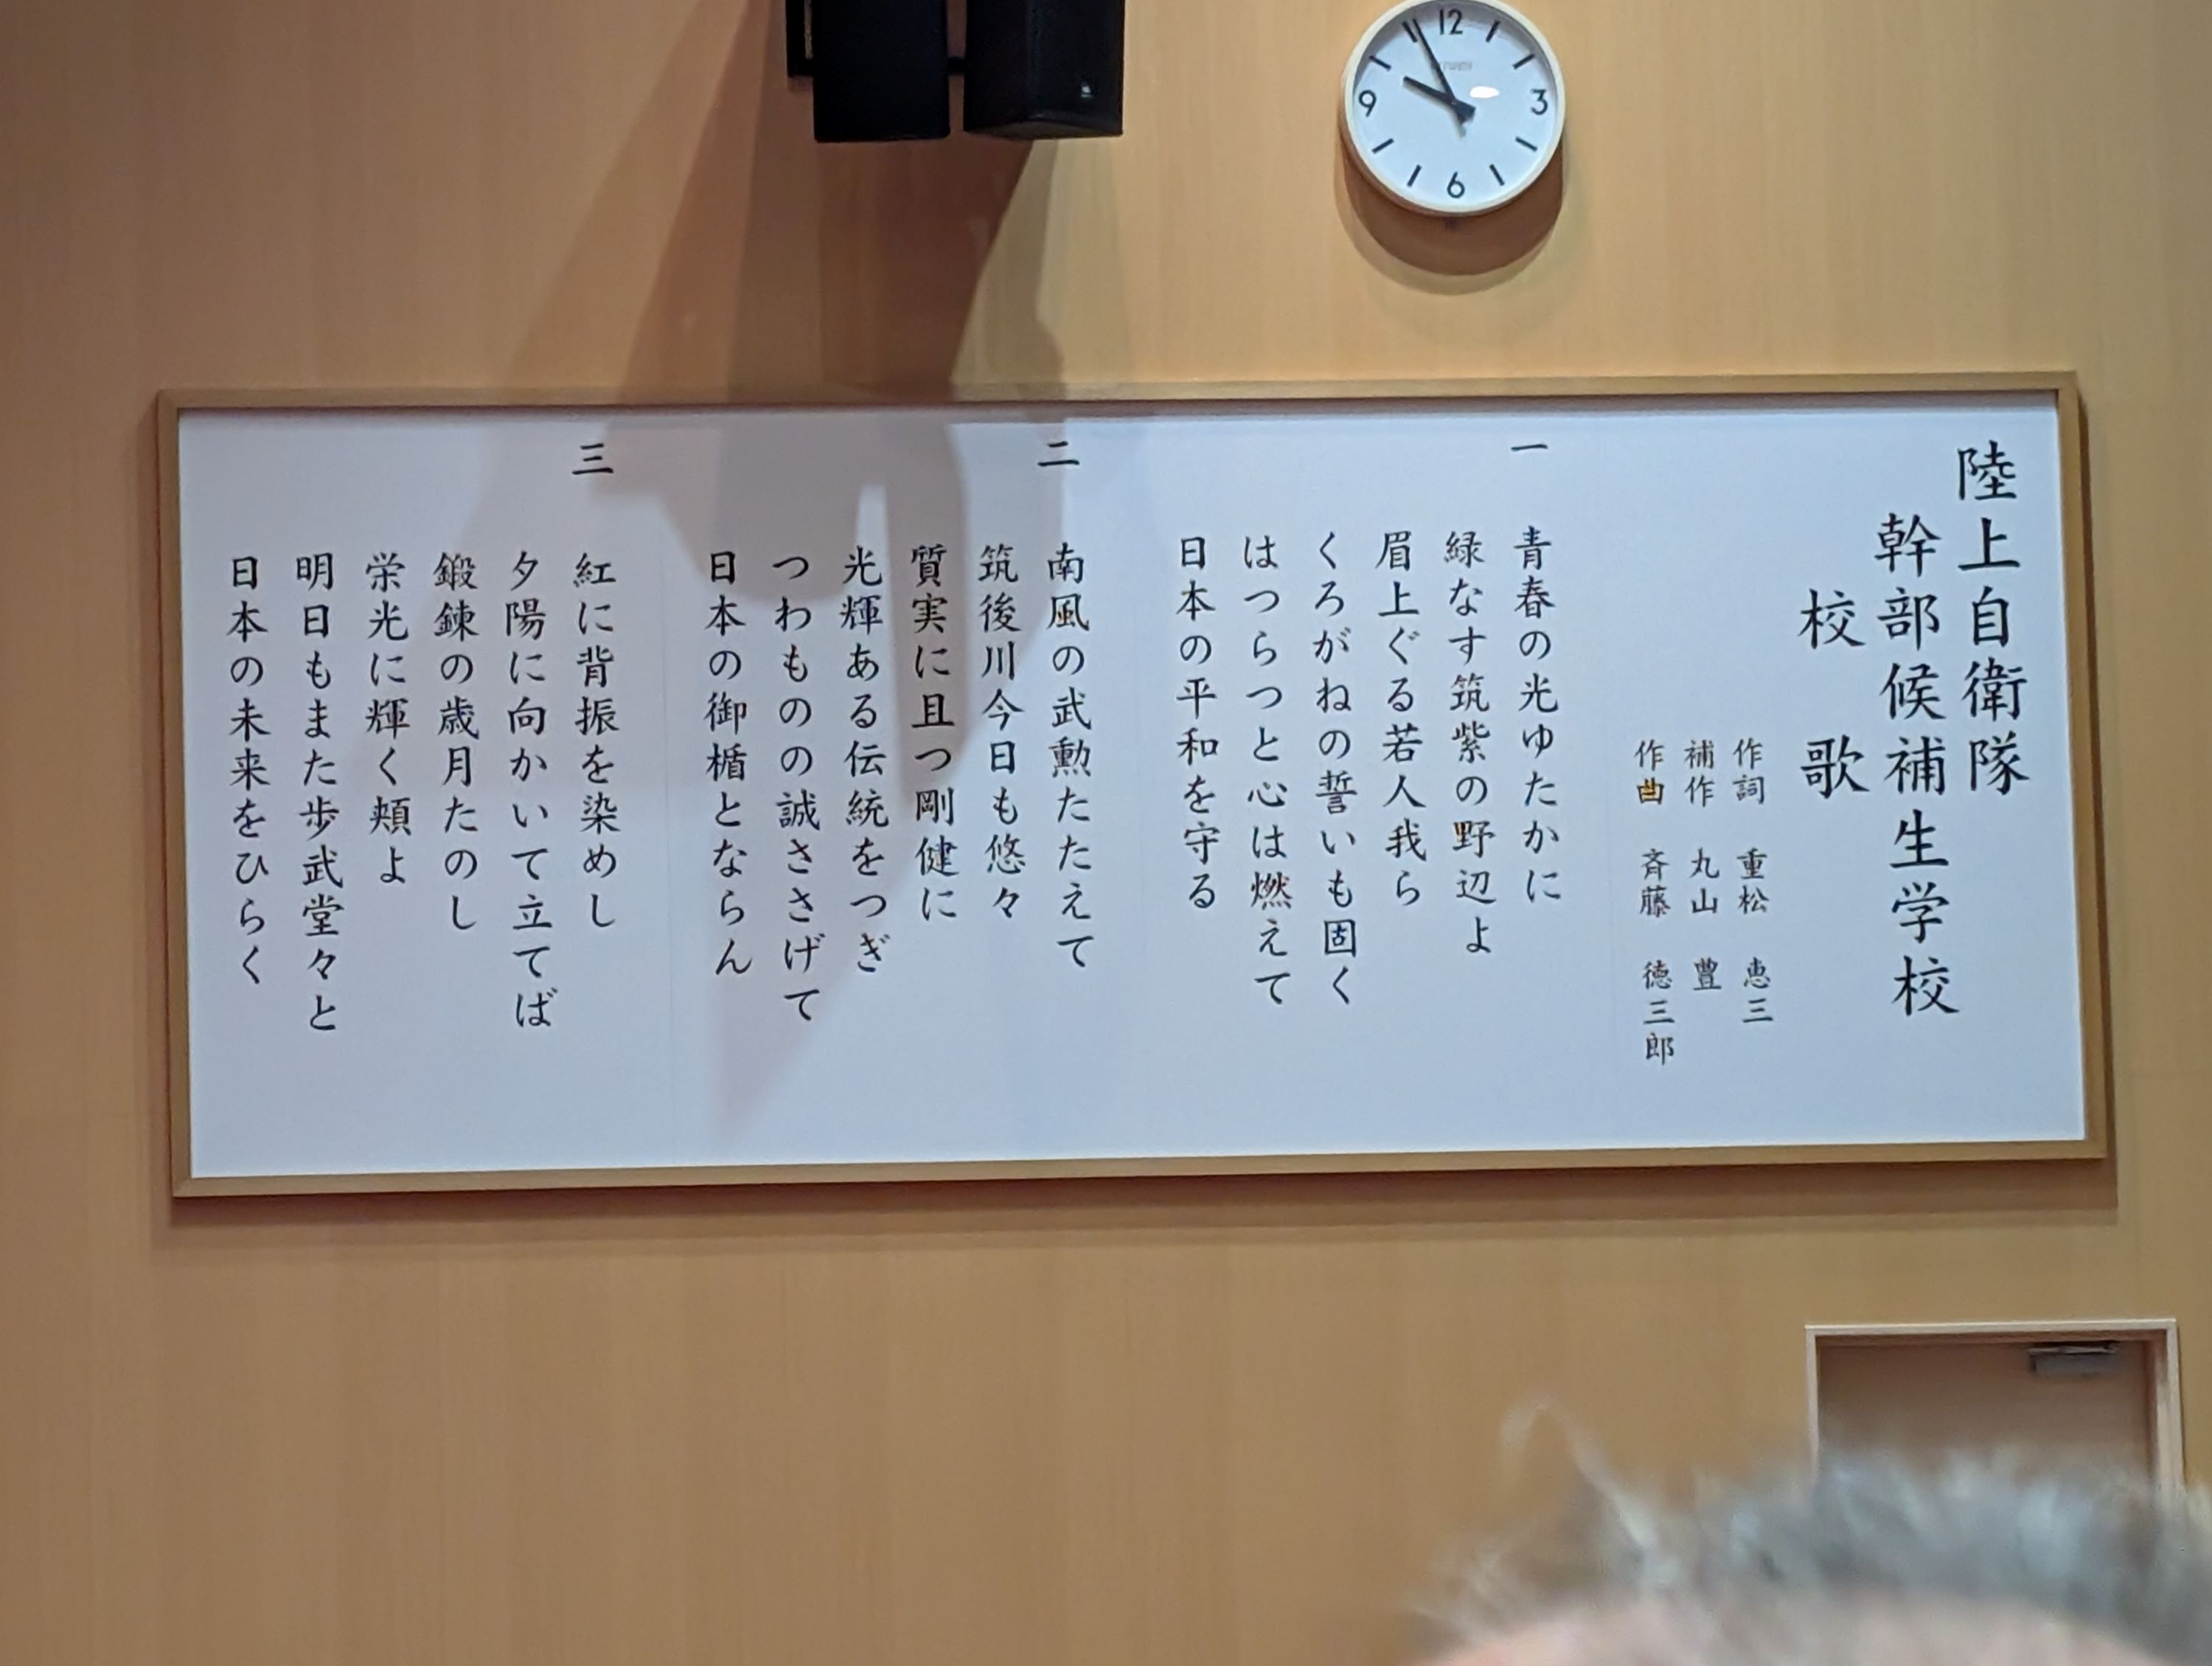 12
3
6
9
陸上自衛隊
幹部候補生学校
校歌
作詞 重松 恵三
補作 丸山 豊
作曲 斉藤 徳三郎
一
青春の光ゆたかに
緑なす筑紫の野辺よ
眉上ぐる若人我ら
くろがねの誓いも固く
はつらつと心は燃えて
日本の平和を守る
二
南風の武勲たたえて
筑後川今日も悠々
質実に且つ剛健に
光輝ある伝統をつぎ
つわものの誠ささげて
日本の御楯とならん
三
紅に背振を染めし
夕陽に向かいて立てば
鍛錬の歳月たのし
栄光に輝く頬よ
明日もまた歩武堂々と
日本の未来をひらく